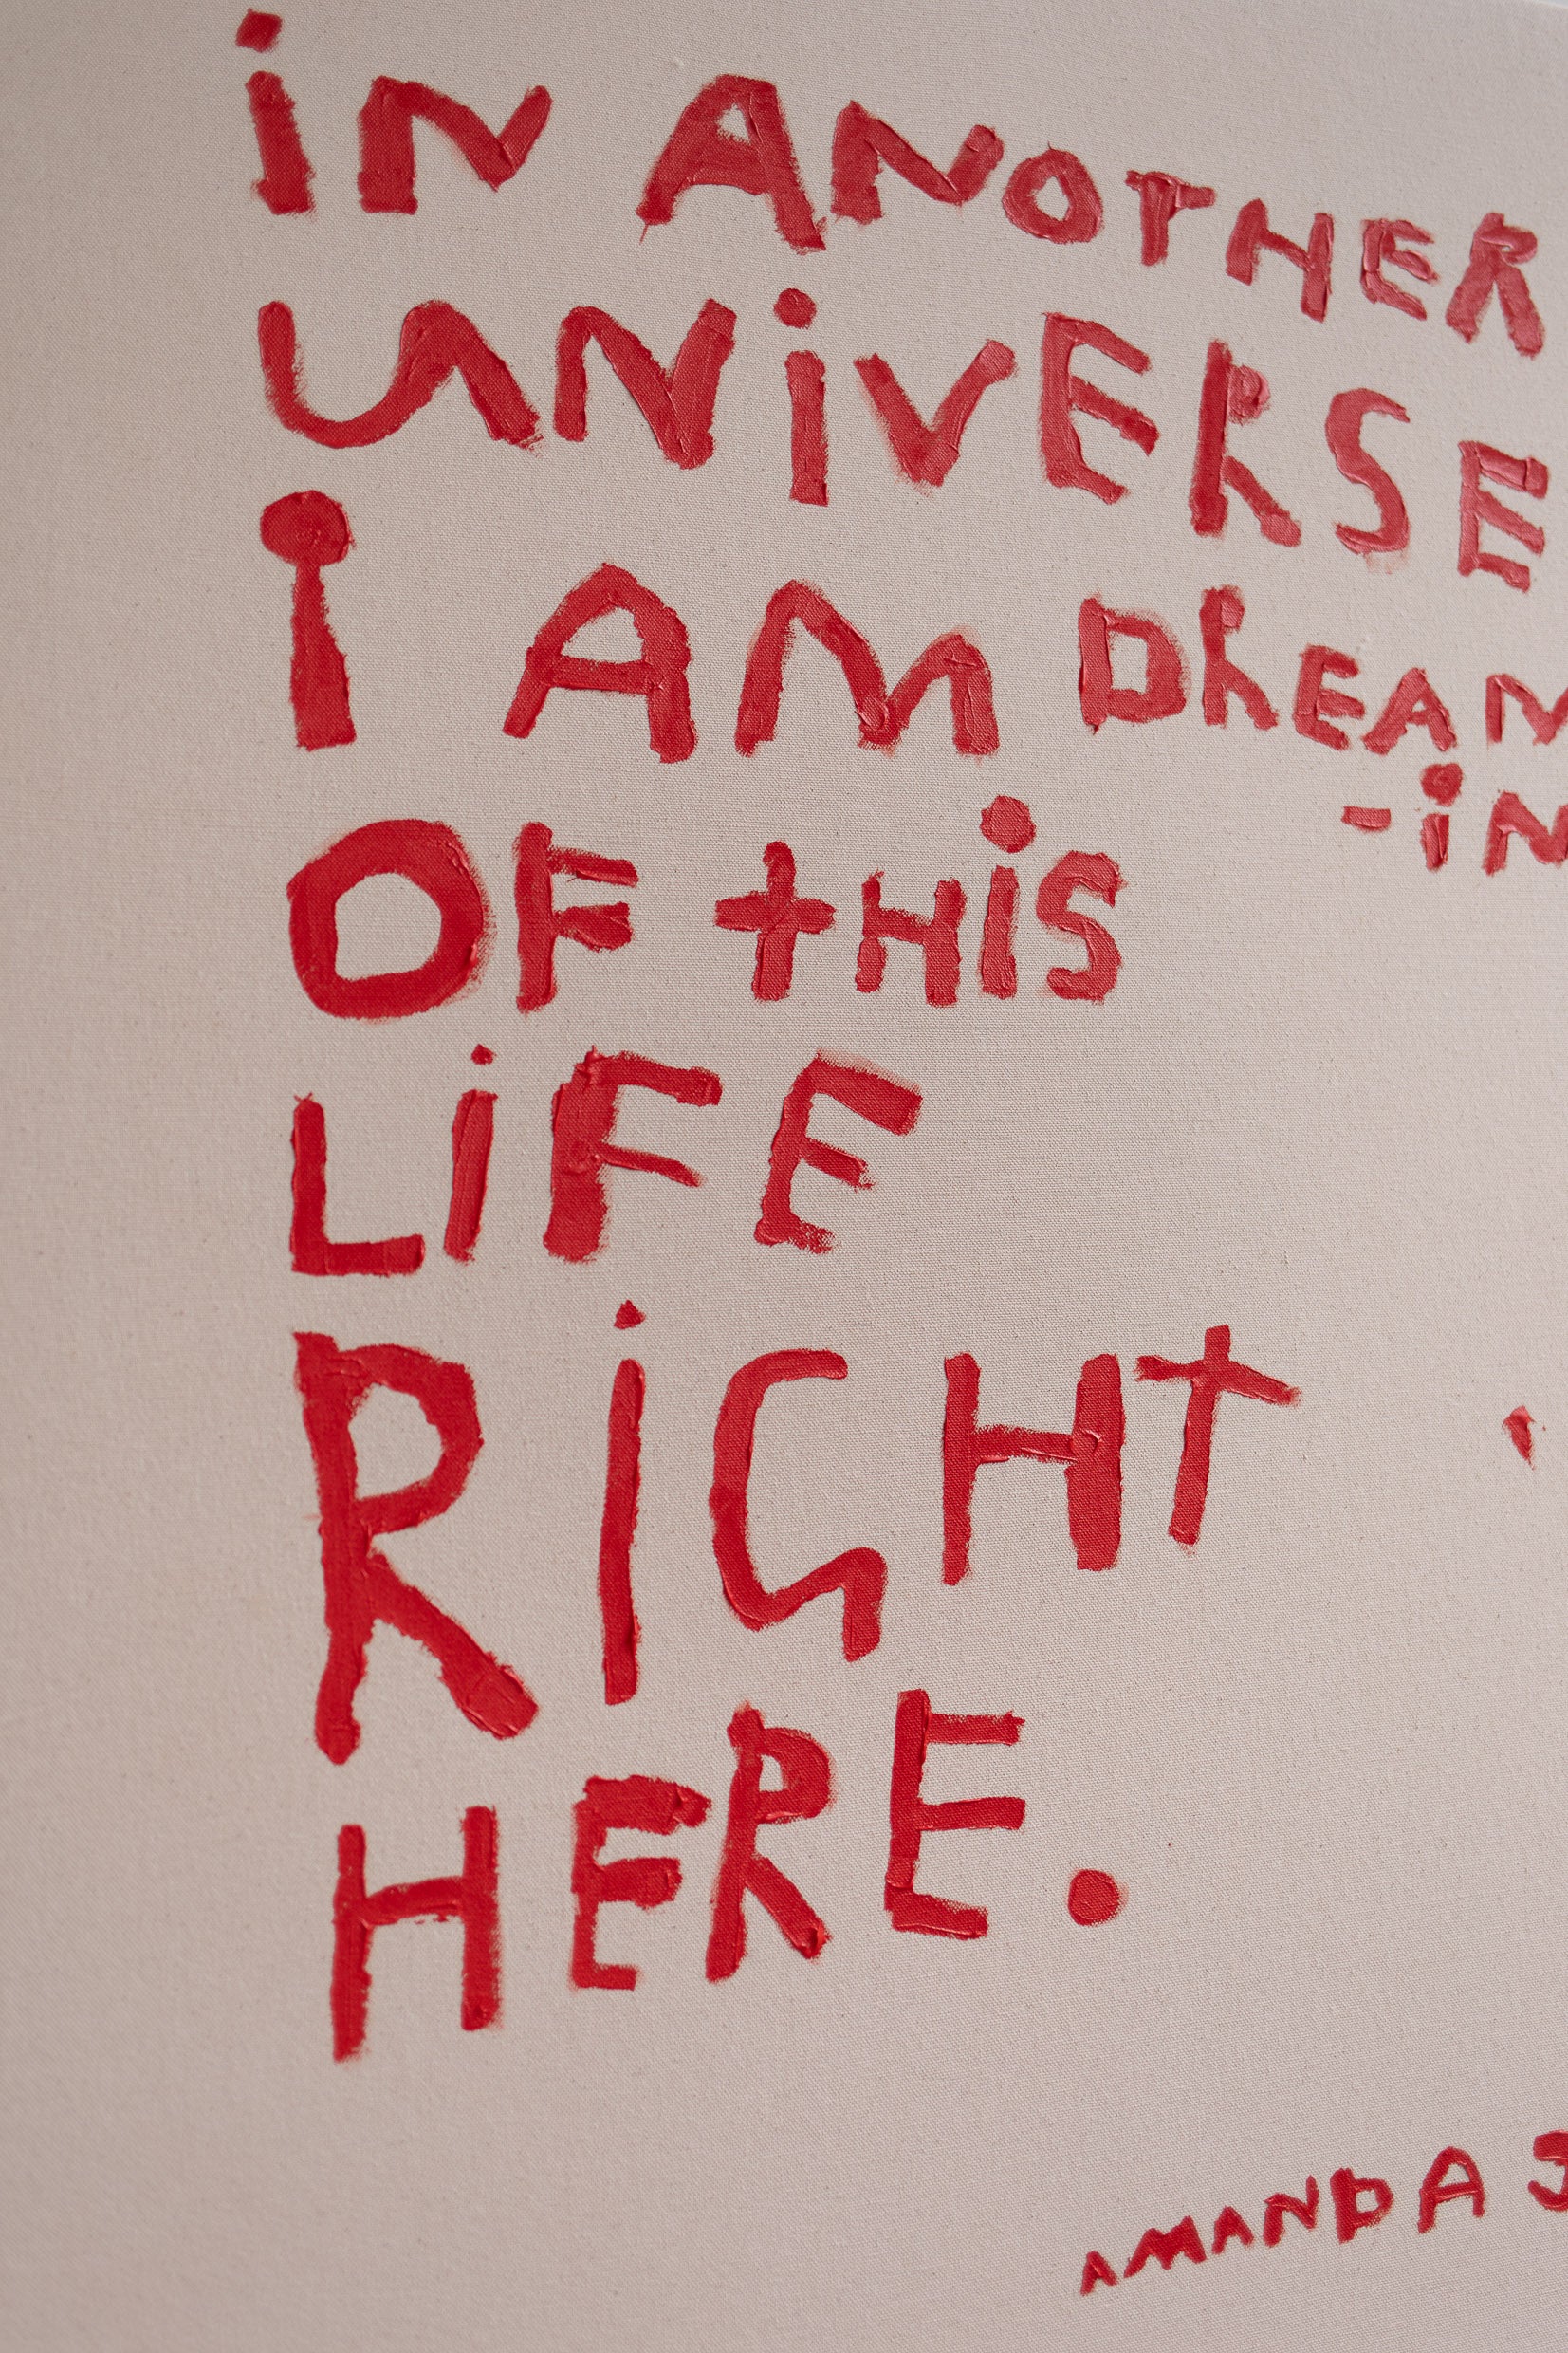 iN ANOTHER
UNiVERSE
I AM DREAM
-iN
OF tHiS
LiFE
RiGHt
HERE.
AMANDA J